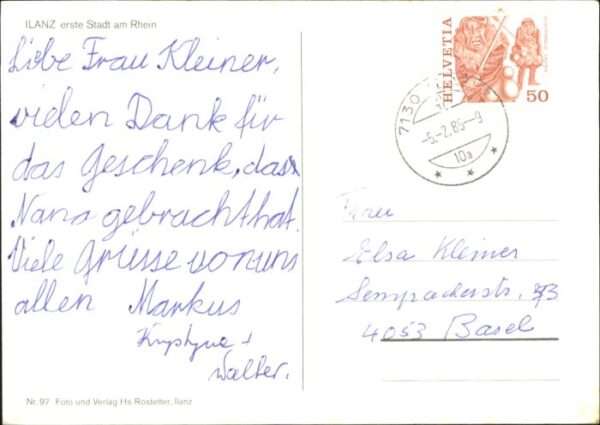 ILANZ erste Stadt am Rhein
Liebe Frau Kleiner,
vielen Dank für
das Geschenk, das
Nana gebracht hat.
Viele Grüsse von uns
allen Markus
Krystyna +
Walter.
Nr. 97 Foto und Verlag Hs Rostetter, Ilanz
HELVETIA
50
7130
-5.-2.85-9
10a
Frau
Elsa Kleiner
Sempacherstr.
4053 Basel